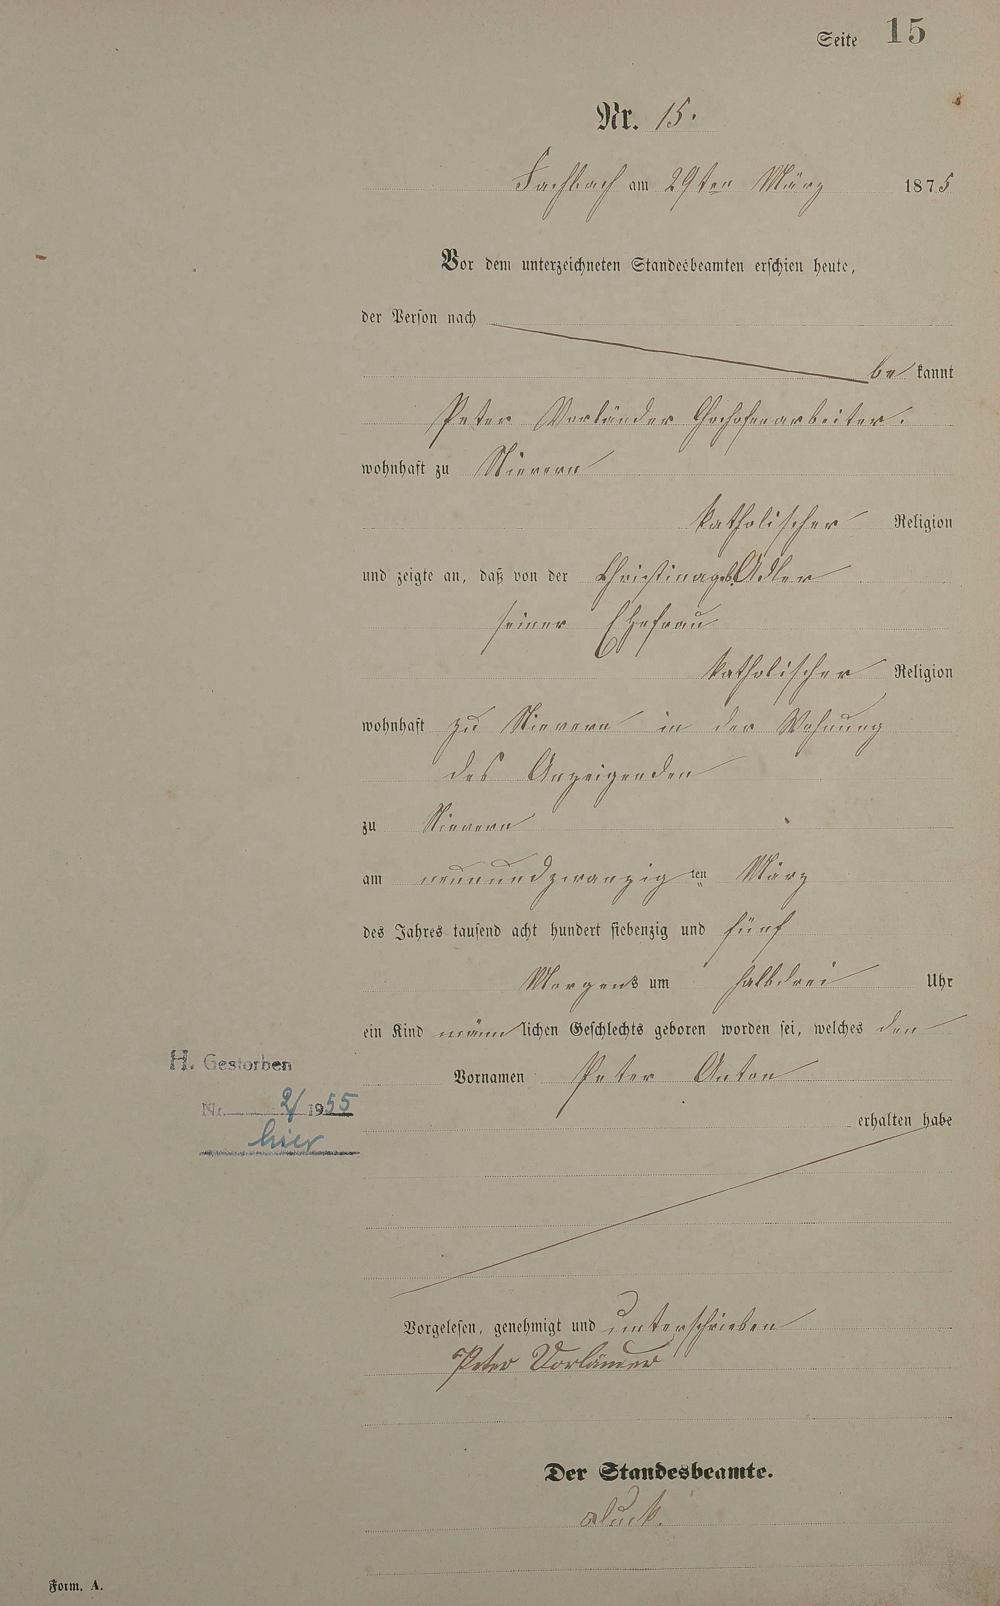 Seite 15
Nr. 15.
Fachbach am 29ten März 1875
Vor dem unterzeichneten Standesbeamten erschien heute,
der Person nach
be kannt
Peter Vorländer Hochofenarbeiter.
wohnhaft zu Nievern
katholischer Religion
und zeigte an, daß von der Christina geb. Adler
seiner Ehefrau
katholischer Religion
wohnhaft zu Nievern in der Wohnung
des Anzeigenden
zu Nievern
am neunundzwanzig ten März
des Jahres tausend acht hundert siebenzig und fünf
Morgens um halbdrei Uhr
ein Kind männlichen Geschlechts geboren worden sei, welches den
Vornamen Peter Anton
erhalten habe
H. Gestorben
Nr. 2/1955
hier
Vorgelesen, genehmigt und unterschrieben
Peter Vorländer
Der Standesbeamte.
Form. A.